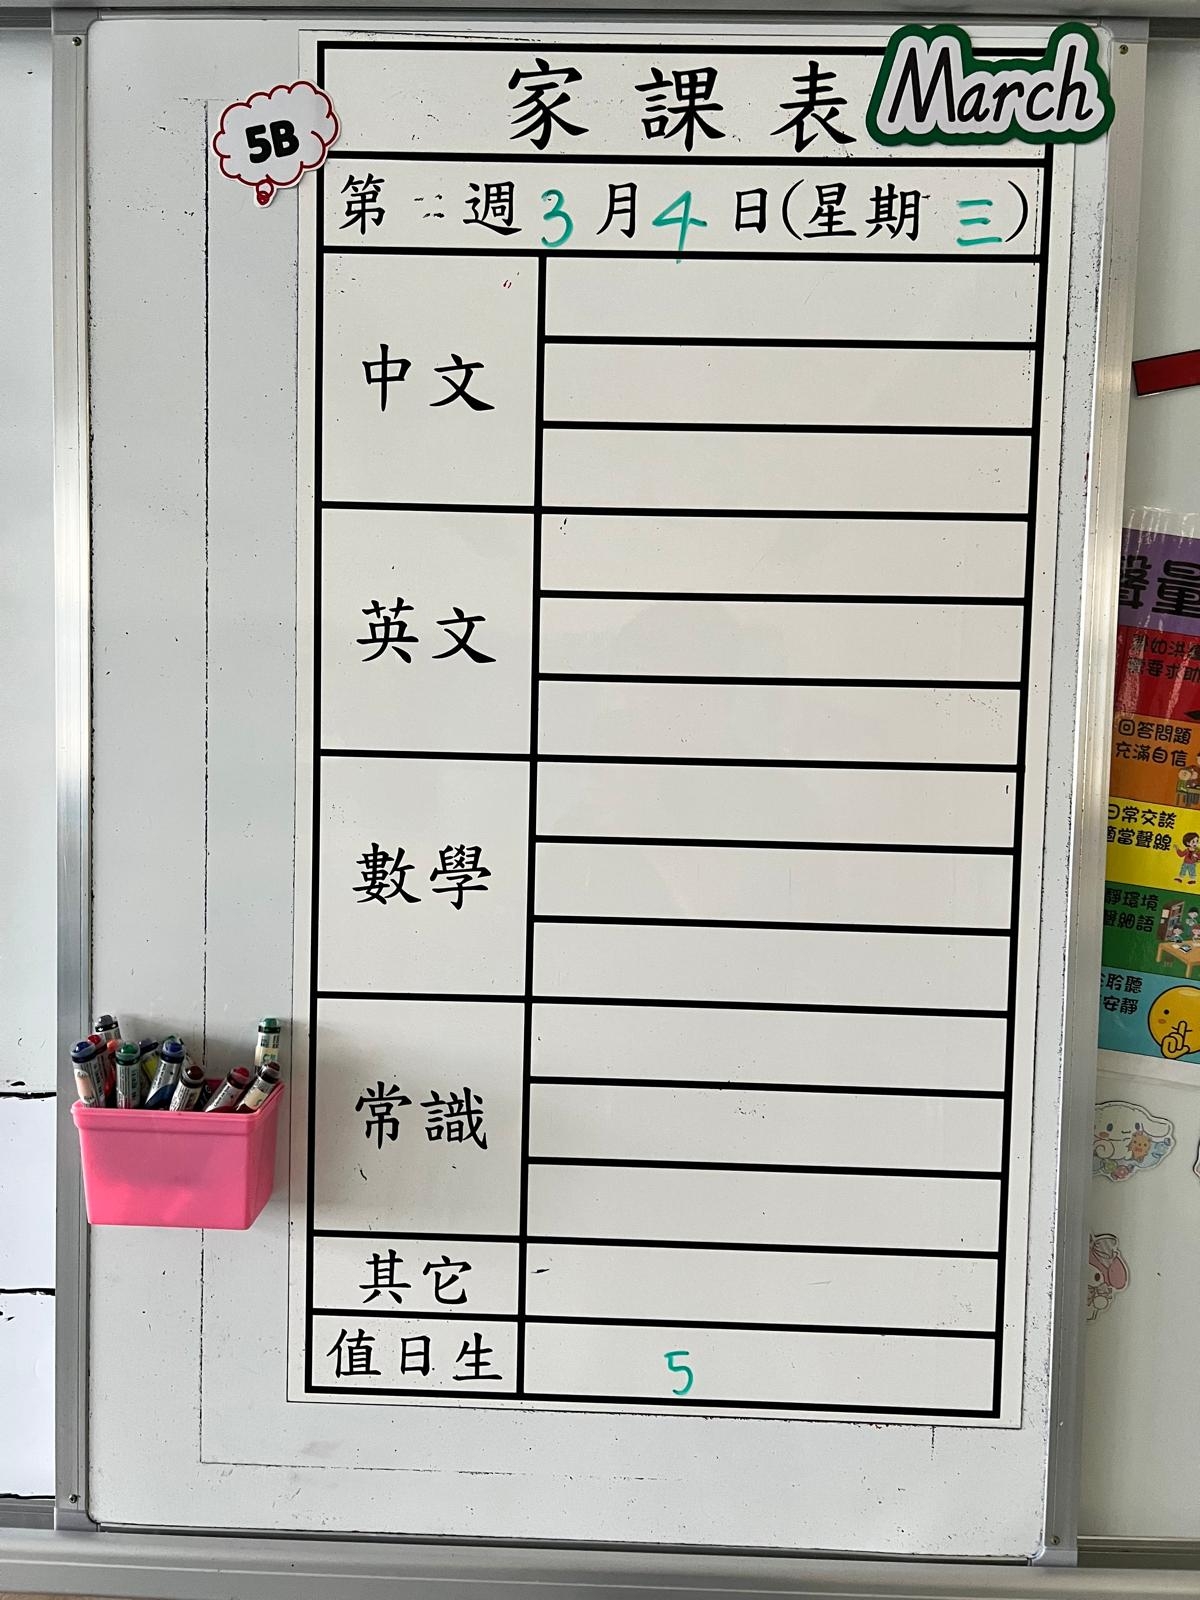 家課表
March
5B
第 週3月4日(星期三)
中文
英文
數學
常識
其它
值日生 5
聲量
需要求助
回答問題
充滿自信
日常交談
適當聲線
靜環境
聲細語
聆聽
安靜